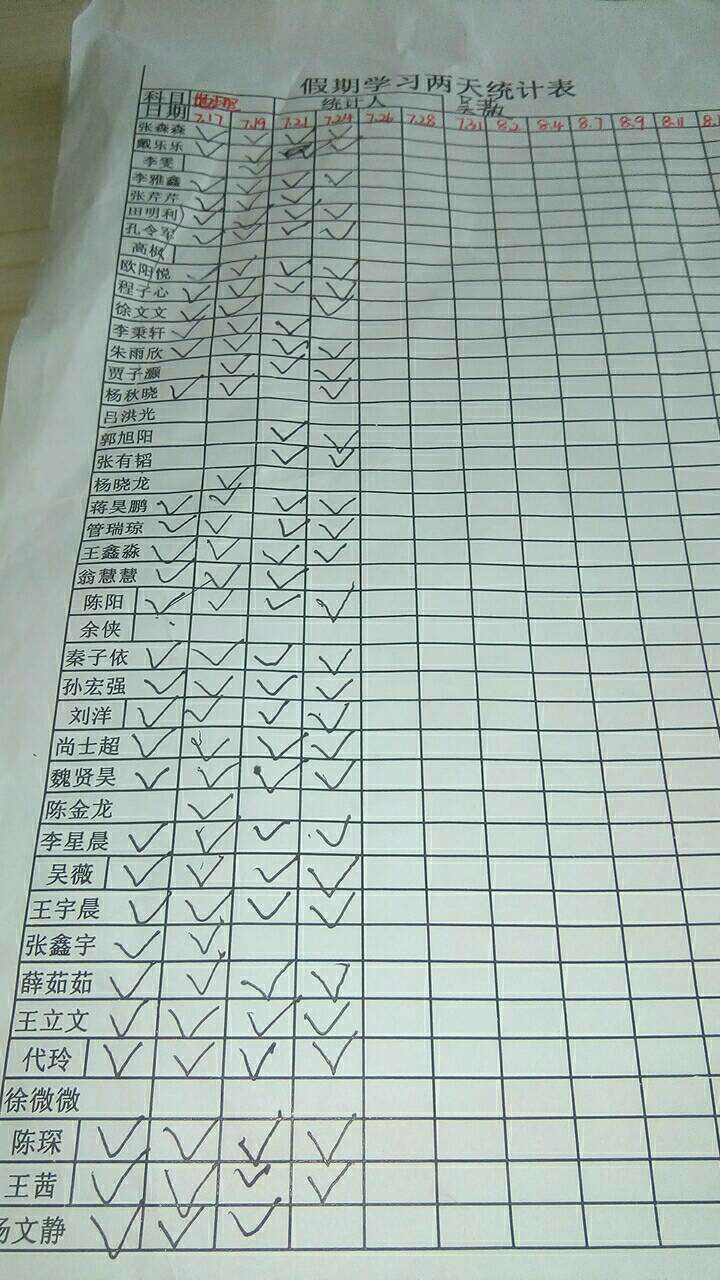 假期学习两天统计表
科目 统计人 吴薇
日期 7.17 7.19 7.21 7.24 7.26 7.28 7.31 8.2 8.4 8.7 8.9 8.11
张森森 ✓ ✓ ✓ ✓
戴乐乐 ✓ ✓ ✓
李雯 ✓
李雅鑫 ✓ ✓ ✓ ✓
张芹芹 ✓ ✓ ✓
田明利 ✓ ✓ ✓ ✓
孔令军 ✓ ✓ ✓ ✓
高枫
欧阳悦 ✓ ✓ ✓ ✓
程子心 ✓ ✓ ✓ ✓
徐文文 ✓ ✓ ✓
李秉轩 ✓ ✓ ✓
朱雨欣 ✓ ✓ ✓ ✓
贾子灏 ✓ ✓ ✓
杨秋晓 ✓ ✓ ✓
吕洪光
郭旭阳 ✓ ✓
张有韬 ✓ ✓
杨晓龙 ✓
蒋昊鹏 ✓ ✓ ✓ ✓
管瑞琼 ✓ ✓ ✓ ✓
王鑫淼 ✓ ✓ ✓ ✓
翁慧慧 ✓ ✓ ✓
陈阳 ✓ ✓ ✓ ✓
余侠
秦子依 ✓ ✓ ✓ ✓
孙宏强 ✓ ✓ ✓ ✓
刘洋 ✓ ✓ ✓ ✓
尚士超 ✓ ✓ ✓ ✓
魏贤昊 ✓ ✓ ✓ ✓
陈金龙 ✓
李星晨 ✓ ✓ ✓ ✓
吴薇 ✓ ✓ ✓ ✓
王宇晨 ✓ ✓ ✓ ✓
张鑫宇 ✓ ✓
薛茹茹 ✓ ✓ ✓ ✓
王立文 ✓ ✓ ✓ ✓
代玲 ✓ ✓ ✓ ✓
徐微微
陈琛 ✓ ✓ ✓ ✓
王茜 ✓ ✓ ✓ ✓
杨文静 ✓ ✓ ✓